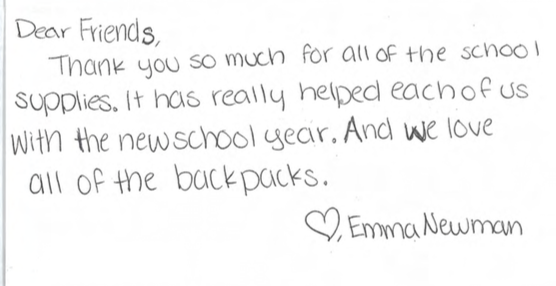 Dear Friends,
Thank you so much for all of the school
supplies. It has really helped each of us
with the new school year. And we love
all of the backpacks.
♡, Emma Newman